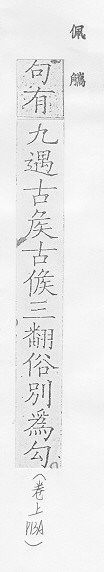 佩觿
句有九遇古矦古候三翻俗別為勾
(卷上P13A)